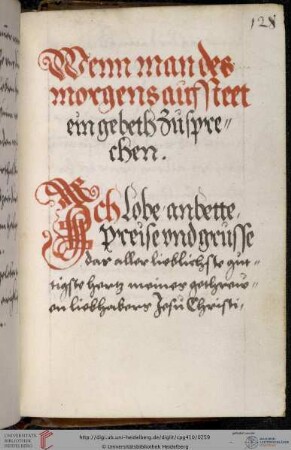 128
Wenn man des
morgens auffsteet
ein gebeth Zuspre„
chen.
Ich lobe anbette,
preise vnd grusse
das aller lieblichste gut„
tigste hertz meines gethrew„
en liebhabers Jesu Christi,
UNIVERSITÄTS-
BIBLIOTHEK
HEIDELBERG
http://digi.ub.uni-heidelberg.de/diglit/cpg419/0259
© Universitätsbibliothek Heidelberg